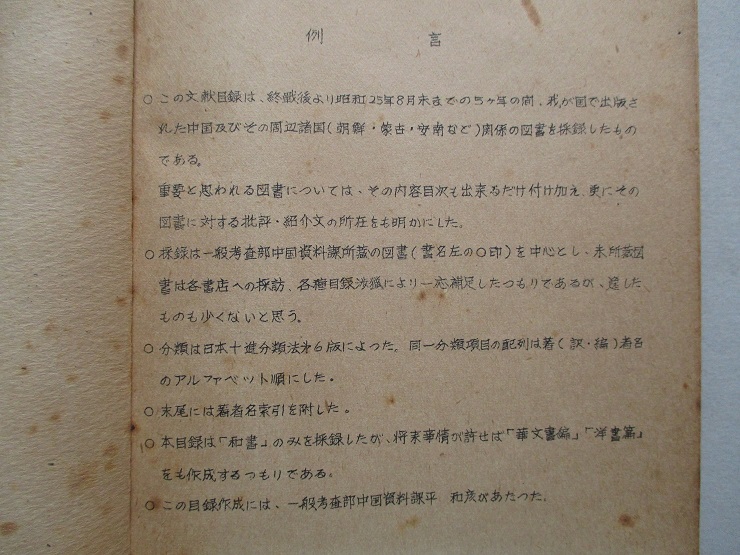 例言
○ この文献目録は、終戦後より昭和25年8月末までの5ヶ年の間、我が国で出版さ
れた中国及びその周辺諸国(朝鮮・蒙古・安南など)関係の図書を採録したもの
である。
重要と思われる図書については、その内容目次も出来るだけ付け加え、更にその
図書に対する批評・紹介文の所在をも明かにした。
○ 採録は一般考査部中国資料課所蔵の図書(書名左の○印)を中心とし、未所蔵図
書は各書店への探訪、各種目録渉猟により一応補足したつもりであるが、逸した
ものも少くないと思う。
○ 分類は日本十進分類法第6版によつた。同一分類項目の配列は著(訳・編)者名
のアルファベット順にした。
○ 末尾には著者名索引を附した。
○ 本目録は「和書」のみを採録したが、将来事情が許せば「華文書編」「洋書篇」
をも作成するつもりである。
○ この目録作成には、一般考査部中国資料課平 和彦があたつた。